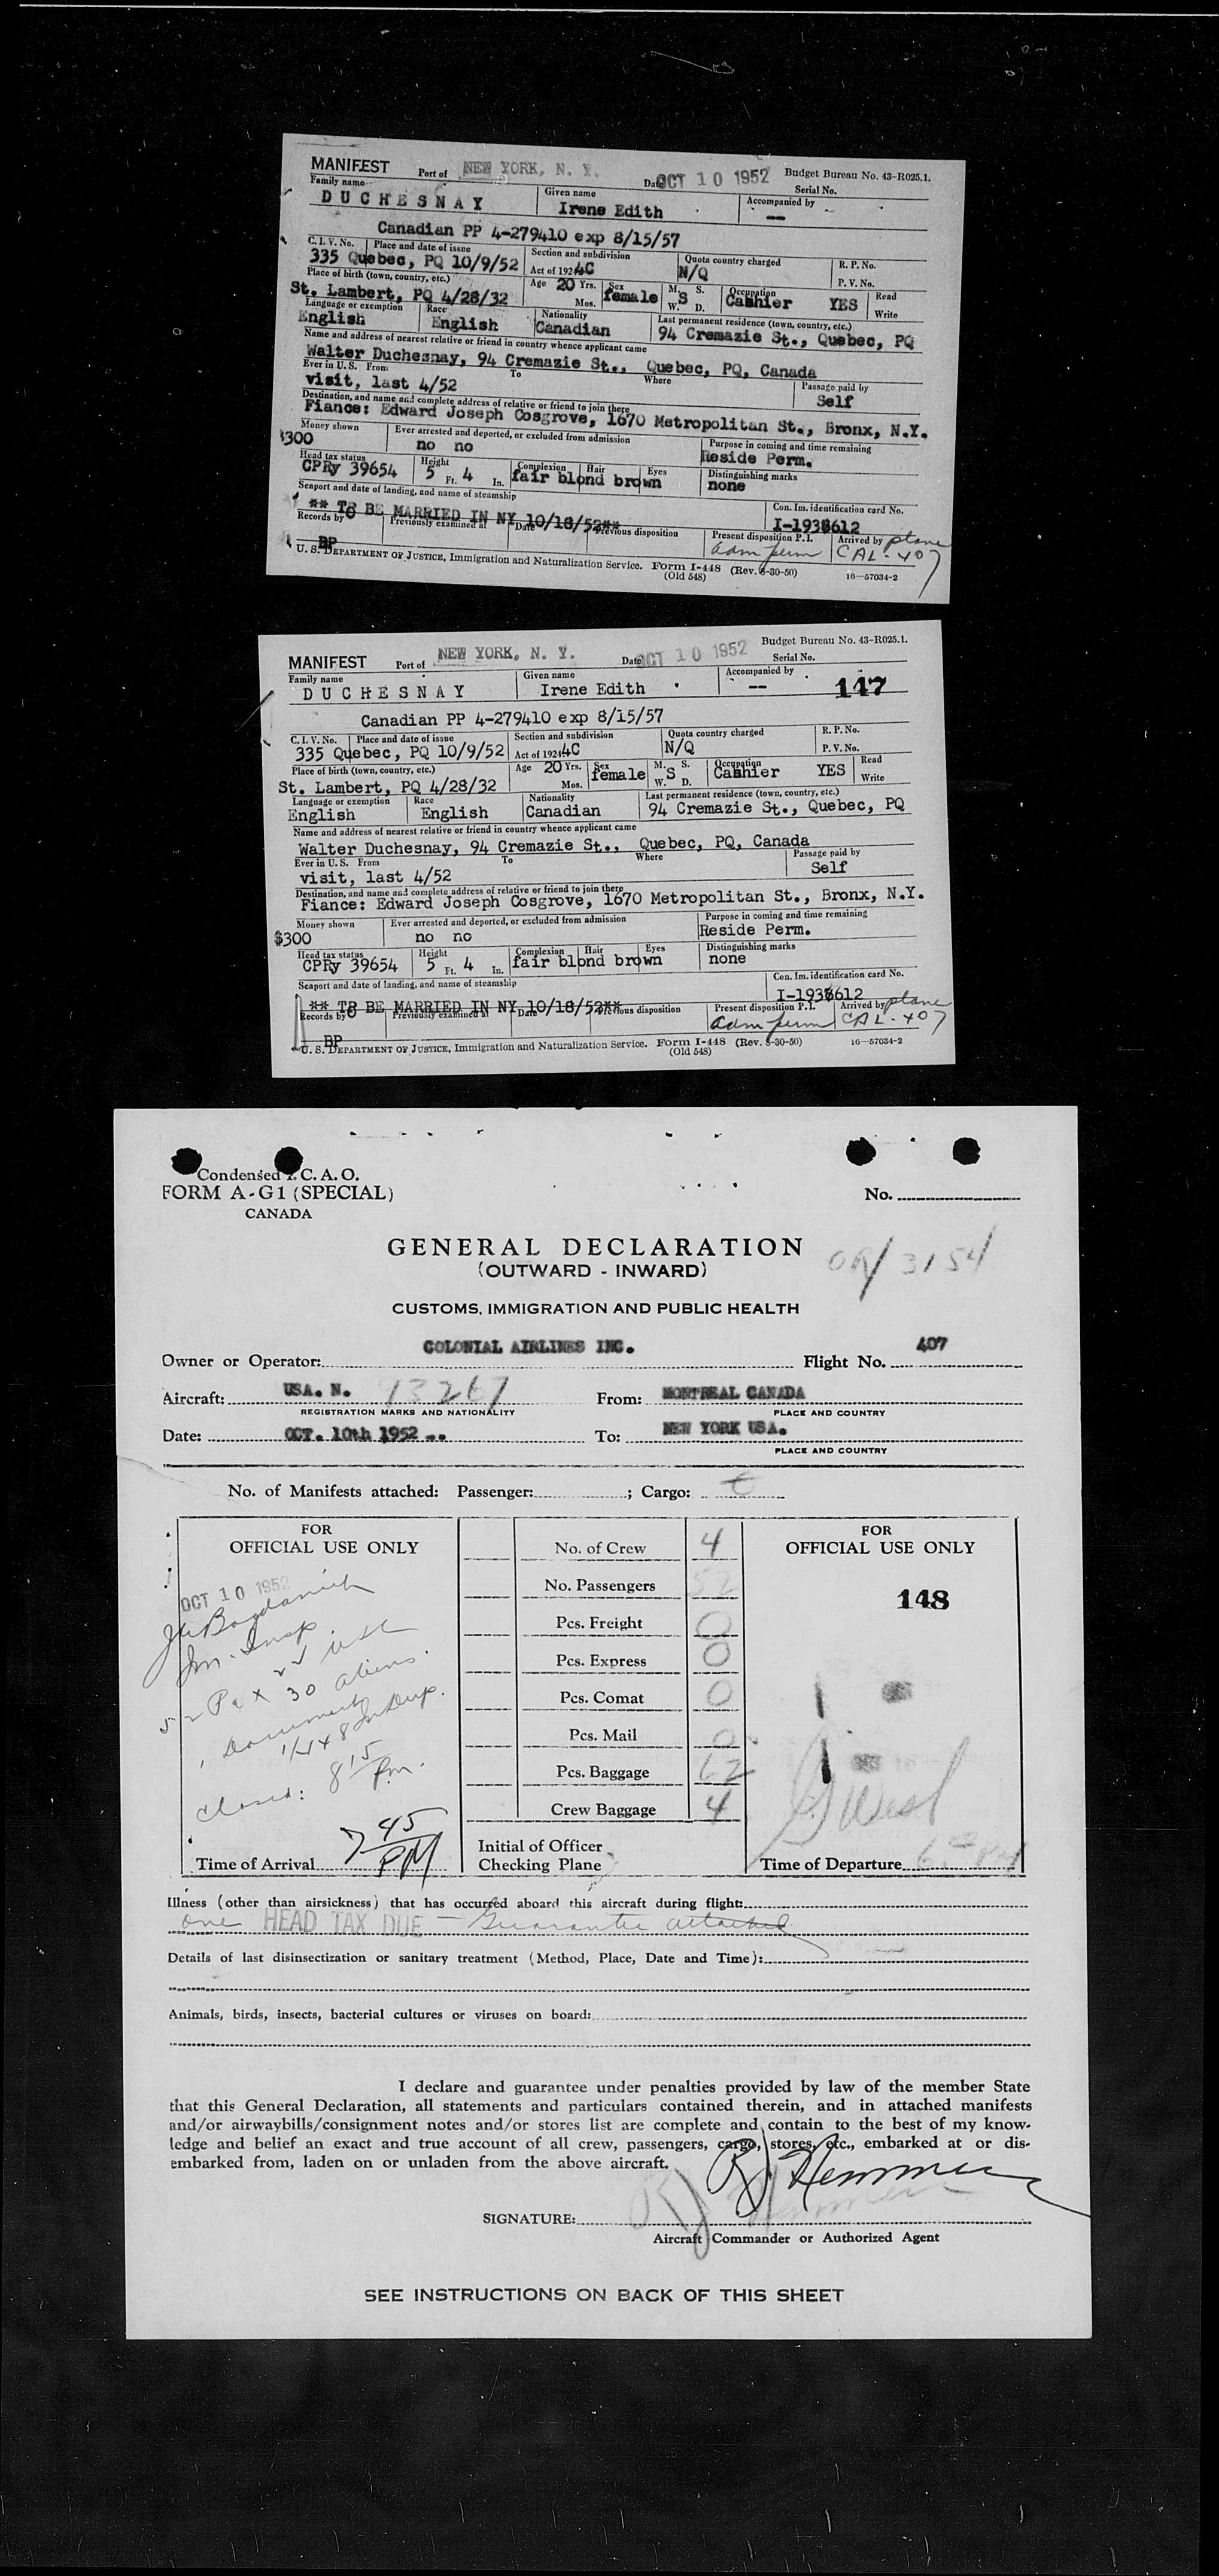 MANIFEST Port of NEW YORK, N. Y. Date OCT 10 1952 Budget Bureau No. 43-R025.1.
Serial No.
Family name Given name Accompanied by
DUCHESNAY Irene Edith --
Canadian PP 4-279410 exp 8/15/57
C. I. V. No. Place and date of issue Section and subdivision Quota country charged R. P. No.
335 Quebec, PQ 10/9/52 Act of 1924 4C N/Q P. V. No.
Place of birth (town, country, etc.) Age 20 Yrs. Sex M. S. Occupation Read
St. Lambert, PQ 4/28/32 Mos. female W. S D. Cashier YES Write
Language or exemption Race Nationality Last permanent residence (town, country, etc.)
English English Canadian 94 Cremazie St., Quebec, PQ
Name and address of nearest relative or friend in country whence applicant came
Walter Duchesnay, 94 Cremazie St., Quebec, PQ, Canada
Ever in U. S. From To Where Passage paid by
visit, last 4/52 Self
Destination, and name and complete address of relative or friend to join there
Fiance: Edward Joseph Cosgrove, 1670 Metropolitan St., Bronx, N.Y.
Money shown Ever arrested and deported, or excluded from admission Purpose in coming and time remaining
$300 no no Reside Perm.
Head tax status Height Complexion Hair Eyes Distinguishing marks
CPRy 39654 5 Ft. 4 In. fair blond brown none
Seaport and date of landing, and name of steamship Con. Im. identification card No.
** TO BE MARRIED IN NY 10/18/52** I-1936612
Records by Previously examined at Date Previous disposition Present disposition P.I. Arrived by plane
BP adm perm CAL-407
U. S. DEPARTMENT OF JUSTICE, Immigration and Naturalization Service. Form I-448 (Rev. 6-30-50) 16—57034-2
(Old 548)
MANIFEST Port of NEW YORK, N. Y. Date OCT 10 1952 Budget Bureau No. 43-R025.1.
Serial No.
Family name Given name Accompanied by
DUCHESNAY Irene Edith -- 147
Canadian PP 4-279410 exp 8/15/57
C. I. V. No. Place and date of issue Section and subdivision Quota country charged R. P. No.
335 Quebec, PQ 10/9/52 Act of 1924 4C N/Q P. V. No.
Place of birth (town, country, etc.) Age 20 Yrs. Sex M. S. Occupation Read
St. Lambert, PQ 4/28/32 Mos. female W. S D. Cashier YES Write
Language or exemption Race Nationality Last permanent residence (town, country, etc.)
English English Canadian 94 Cremazie St., Quebec, PQ
Name and address of nearest relative or friend in country whence applicant came
Walter Duchesnay, 94 Cremazie St., Quebec, PQ, Canada
Ever in U. S. From To Where Passage paid by
visit, last 4/52 Self
Destination, and name and complete address of relative or friend to join there
Fiance: Edward Joseph Cosgrove, 1670 Metropolitan St., Bronx, N.Y.
Money shown Ever arrested and deported, or excluded from admission Purpose in coming and time remaining
$300 no no Reside Perm.
Head tax status Height Complexion Hair Eyes Distinguishing marks
CPRy 39654 5 Ft. 4 In. fair blond brown none
Seaport and date of landing, and name of steamship Con. Im. identification card No.
** TO BE MARRIED IN NY 10/18/52** I-1936612
Records by Previously examined at Date Previous disposition Present disposition P.I. Arrived by plane
BP adm perm CAL-407
U. S. DEPARTMENT OF JUSTICE, Immigration and Naturalization Service. Form I-448 (Rev. 6-30-50) 16—57034-2
(Old 548)
Condensed I. C. A. O.
FORM A-G1 (SPECIAL) No.
CANADA
GENERAL DECLARATION
(OUTWARD - INWARD)
OR/3154
CUSTOMS, IMMIGRATION AND PUBLIC HEALTH
Owner or Operator: COLONIAL AIRLINES INC. Flight No. 407
Aircraft: USA. N. 73267 From: MONTREAL CANADA
REGISTRATION MARKS AND NATIONALITY PLACE AND COUNTRY
Date: OCT. 10th 1952 To: NEW YORK USA.
PLACE AND COUNTRY
No. of Manifests attached: Passenger: ; Cargo:
FOR OFFICIAL USE ONLY
OCT 10 1952
Bogdanich
Im. Insp
52 Pax 22 USC
30 aliens.
Closed: 8 15 Pm.
Time of Arrival 7 45 PM
No. of Crew 4
No. Passengers 52
Pcs. Freight 0
Pcs. Express 0
Pcs. Comat 0
Pcs. Mail 0
Pcs. Baggage 62
Crew Baggage 4
Initial of Officer
Checking Plane
FOR OFFICIAL USE ONLY
148
Time of Departure
Illness (other than airsickness) that has occurred aboard this aircraft during flight:
one HEAD TAX DUE — Guarantee attached
Details of last disinsectization or sanitary treatment (Method, Place, Date and Time):
Animals, birds, insects, bacterial cultures or viruses on board:
I declare and guarantee under penalties provided by law of the member State
that this General Declaration, all statements and particulars contained therein, and in attached manifests
and/or airwaybills/consignment notes and/or stores list are complete and contain to the best of my know-
ledge and belief an exact and true account of all crew, passengers, cargo, stores, etc., embarked at or dis-
embarked from, laden on or unladen from the above aircraft.
SIGNATURE:
Aircraft Commander or Authorized Agent
SEE INSTRUCTIONS ON BACK OF THIS SHEET